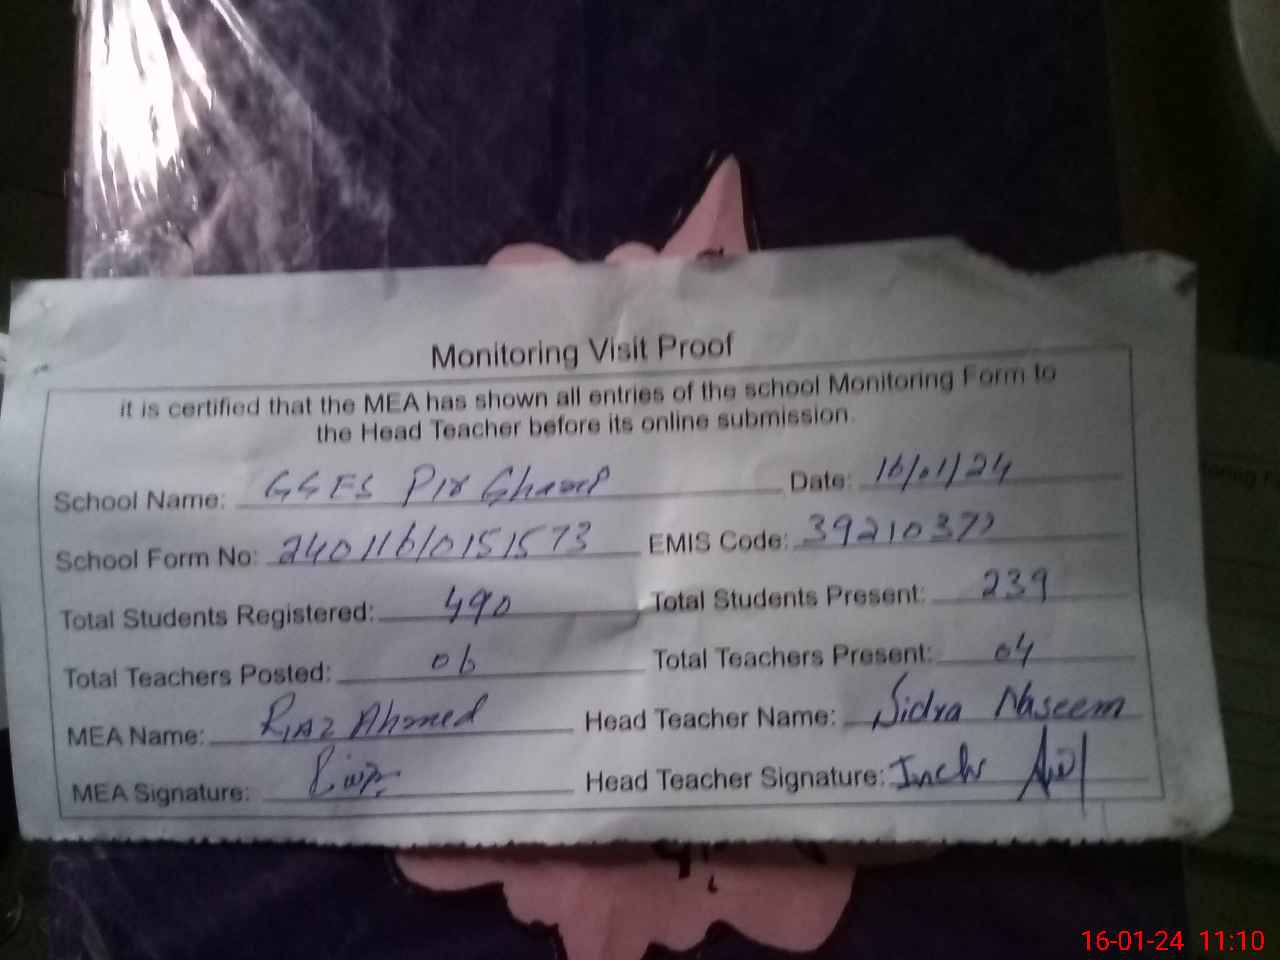 Monitoring Visit Proof
it is certified that the MEA has shown all entries of the school Monitoring Form to
the Head Teacher before its online submission.
School Name: GGES Pir Ghareb Date: 16/01/24
School Form No: 24011610151573 EMIS Code: 39210377
Total Students Registered: 490 Total Students Present: 239
Total Teachers Posted: 06 Total Teachers Present: 04
MEA Name: Riaz Ahmed Head Teacher Name: Sidra Naseem
MEA Signature: Head Teacher Signature: Inch
16-01-24 11:10